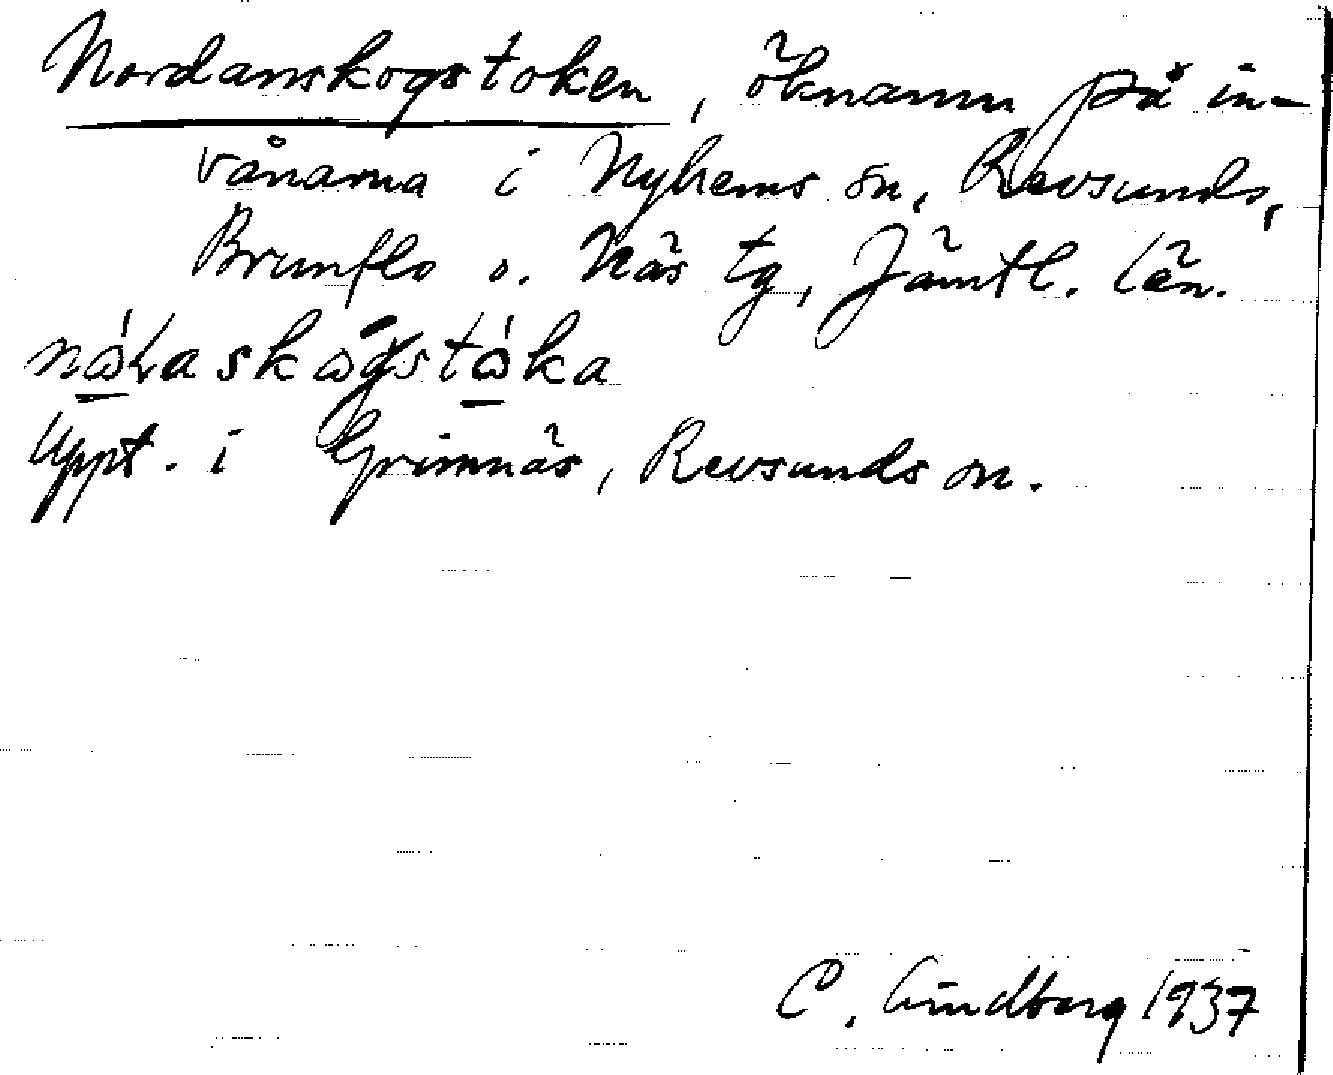 Nordanskogstoken, öknamn på in-
vånarna i Nyhems sn, Revsunds,
Brunflo o. Näs tg, Jämtl. län.
Uppt. i Grimnäs, Revsunds sn.
C. Lindberg 1937